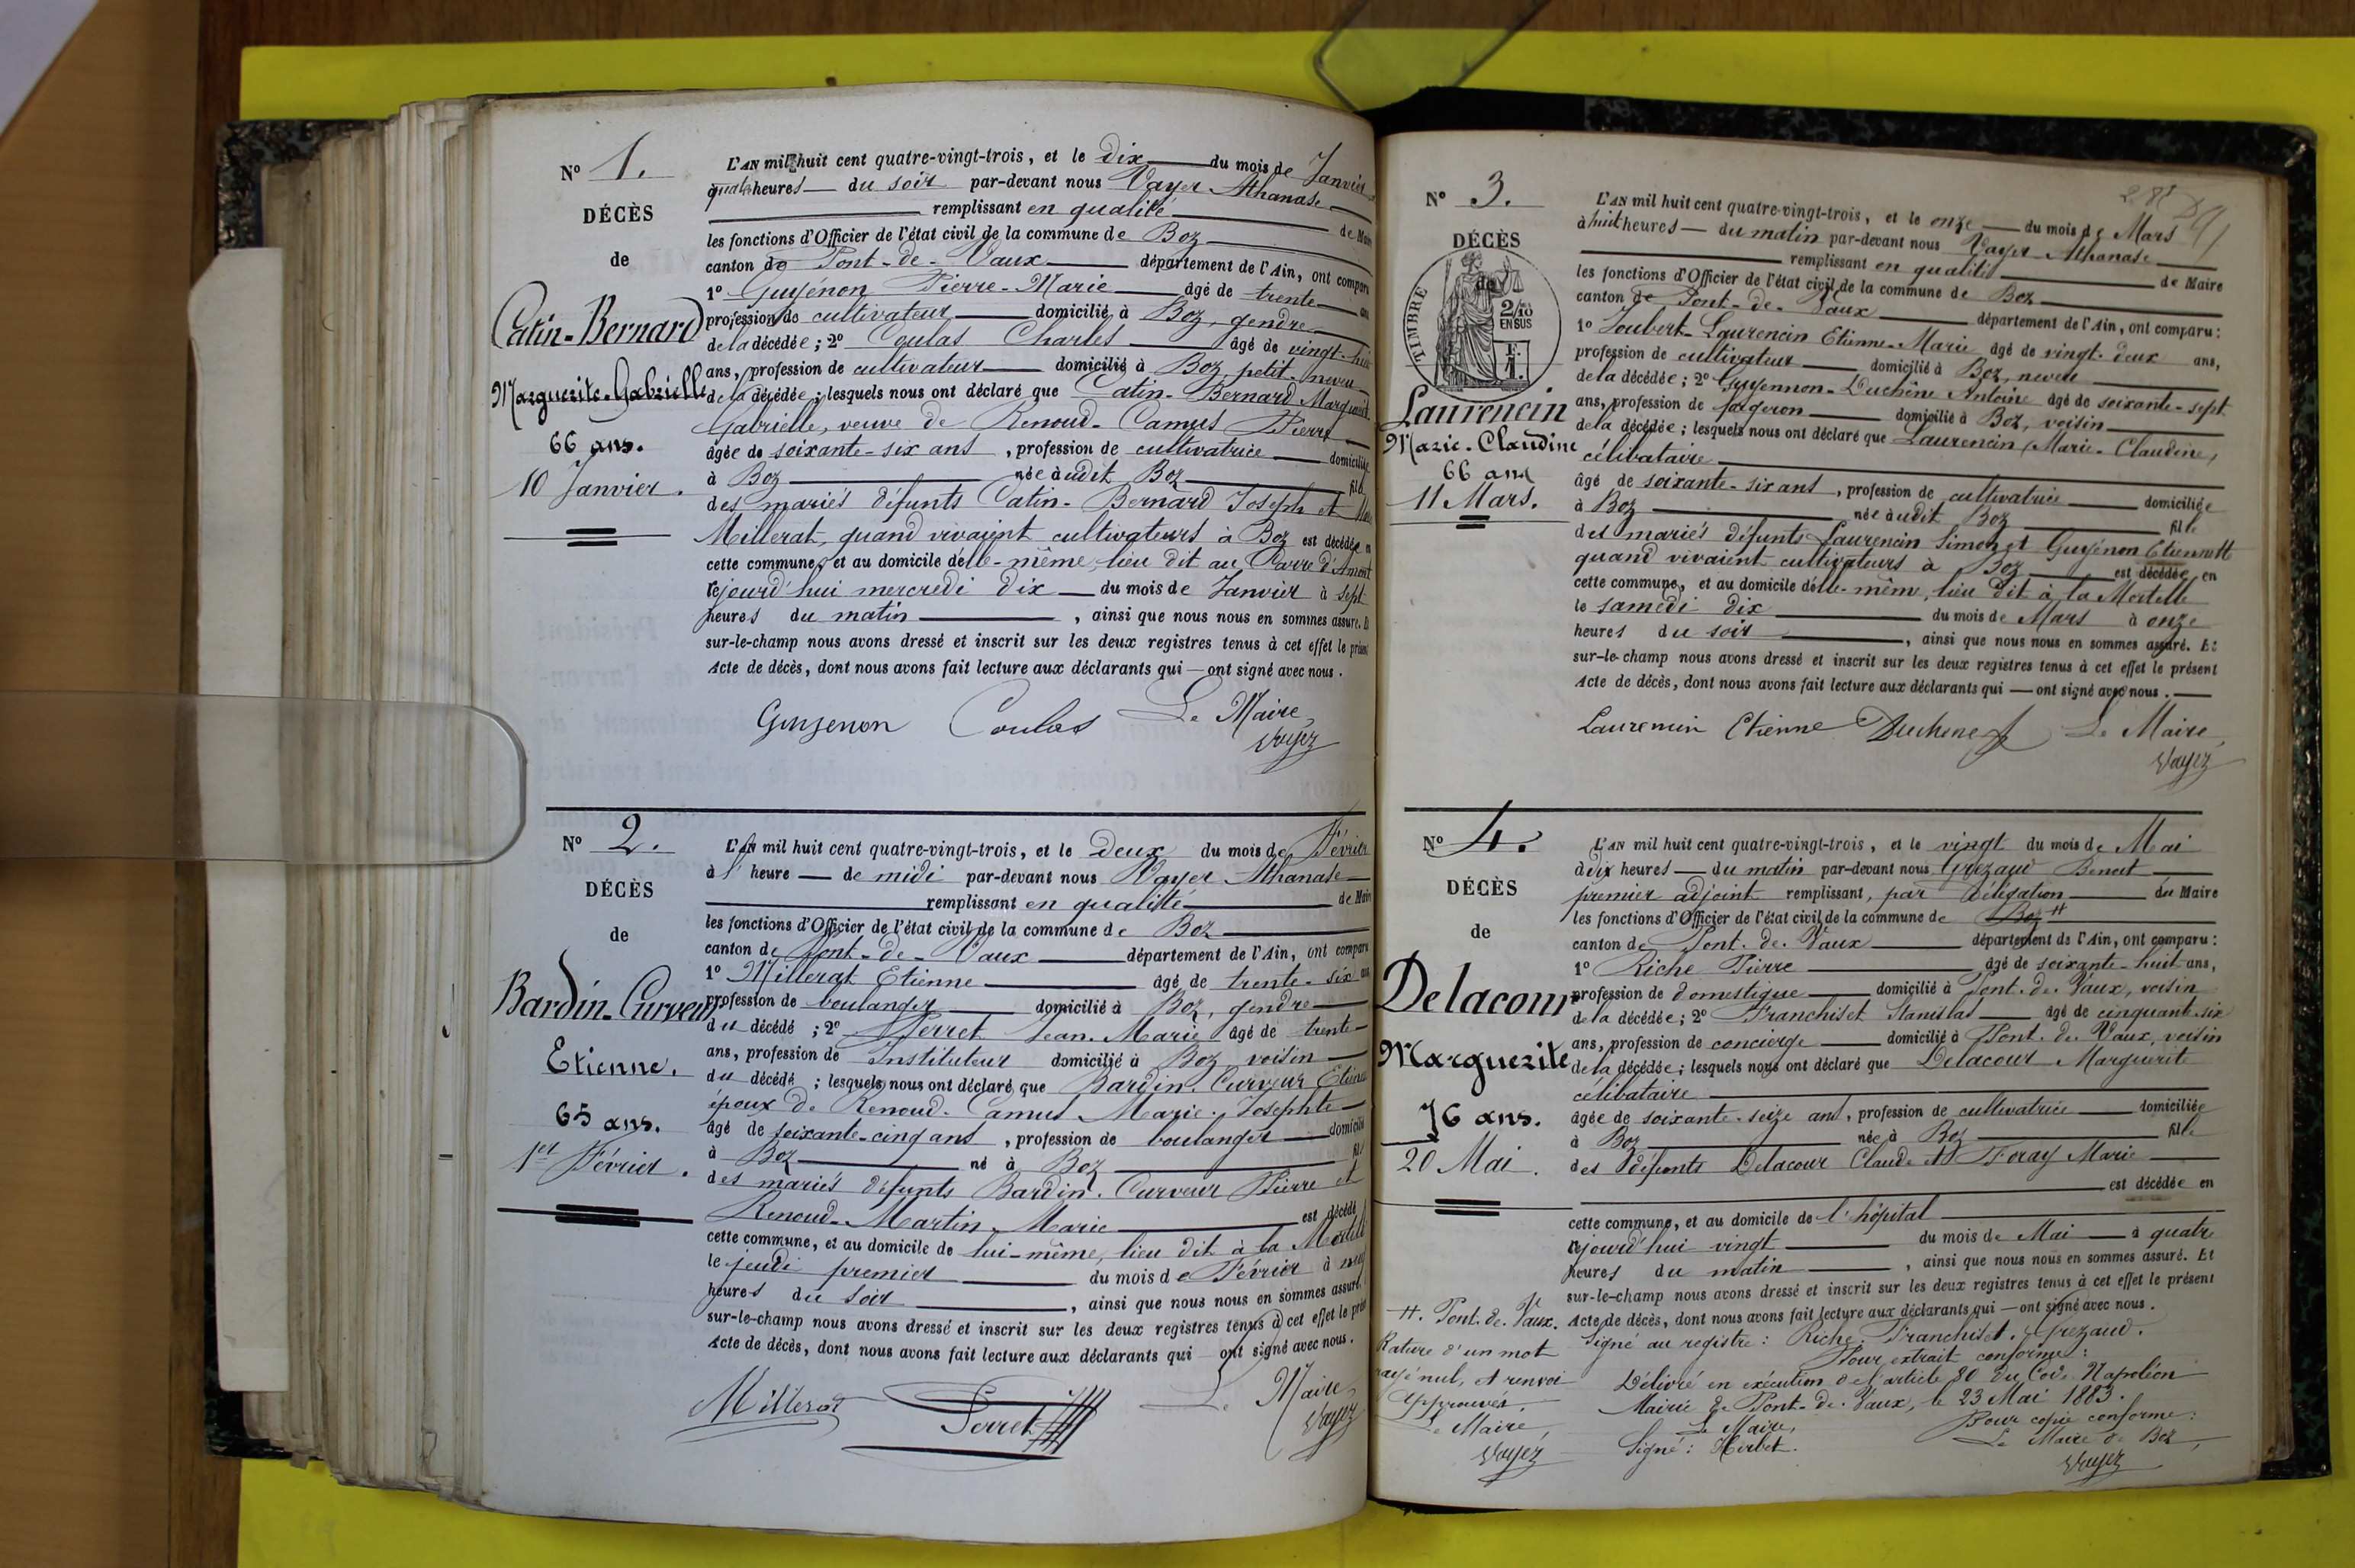 N° 1.
DÉCÈS
de
Catin-Bernard
Marguerite-Gabrielle
66 ans.
10 Janvier.
L'AN mil huit cent quatre-vingt-trois, et le dix du mois de Janvier
quatre heures du soir par-devant nous Vayer Athanase
remplissant en qualité de Maire
les fonctions d'Officier de l'état civil de la commune de Boz
canton de Pont-de-Vaux département de l'Ain, ont comparu
1° Guyénon Pierre-Marie âgé de trente ans
profession de cultivateur domicilié à Boz, gendre
de la décédée; 2° Coulas Charles âgé de vingt-huit
ans, profession de cultivateur domicilié à Boz, petit-neveu
de la décédée; lesquels nous ont déclaré que Catin-Bernard Marguerite
Gabrielle, veuve de Renoud-Camus Pierre
âgée de soixante-six ans, profession de cultivatrice domiciliée
à Boz née audit Boz fille
des mariés défunts Catin-Bernard Joseph et
Millerat, quand vivaient cultivateurs à Boz est décédée en
cette commune, et au domicile d'elle-même, lieu dit au Carre d'Amont
cejourd'hui mercredi dix du mois de Janvier à sept
heures du matin, ainsi que nous nous en sommes assuré. Et
sur-le-champ nous avons dressé et inscrit sur les deux registres tenus à cet effet le présent
Acte de décès, dont nous avons fait lecture aux déclarants qui — ont signé avec nous.
Guyenon Coulas Le Maire,
Vayer
N° 2.
DÉCÈS
de
Bardin-Curveur
Etienne.
65 ans.
1er Février.
L'AN mil huit cent quatre-vingt-trois, et le deux du mois de Février
à 1 heure — de midi par-devant nous Vayer Athanase
remplissant en qualité de Maire
les fonctions d'Officier de l'état civil de la commune de Boz
canton de Pont-de-Vaux département de l'Ain, ont comparu
1° Millerat Etienne âgé de trente-six ans
profession de boulanger domicilié à Boz, gendre
du décédé; 2° Perret Jean-Marie âgé de trente
ans, profession de Instituteur domicilié à Boz voisin
du décédé; lesquels nous ont déclaré que Bardin-Curveur Etienne
époux de Renoud-Camus Marie-Josephte
âgé de soixante-cinq ans, profession de boulanger domicilié
à Boz né à Boz fils
des mariés défunts Bardin-Curveur Pierre et
Renoud-Martin Marie est décédé
cette commune, et au domicile de lui-même, lieu dit à la Mortelle
le jeudi premier du mois de Février à neuf
heures du soir, ainsi que nous nous en sommes assuré.
sur-le-champ nous avons dressé et inscrit sur les deux registres tenus à cet effet le présent
Acte de décès, dont nous avons fait lecture aux déclarants qui — ont signé avec nous.
Millerat Perret Le Maire,
Vayer
N° 3.
DÉCÈS
de
TIMBRE
2/10
EN SUS
Laurencin
Marie-Claudine
66 ans
11 Mars.
L'AN mil huit cent quatre-vingt-trois, et le onze du mois de Mars
à huit heures — du matin par-devant nous Vayer Athanase
remplissant en qualité de Maire
les fonctions d'Officier de l'état civil de la commune de Boz
canton de Pont-de-Vaux département de l'Ain, ont comparu:
1° Joubert-Laurencin Etienne-Marie âgé de vingt-deux ans,
profession de cultivateur domicilié à Boz, neveu
de la décédée; 2° Guyennon-Duchêne Antoine âgé de soixante-sept
ans, profession de forgeron domicilié à Boz, voisin
de la décédée; lesquels nous ont déclaré que Laurencin Marie-Claudine,
célibataire
âgé de soixante-six ans, profession de cultivatrice domiciliée
à Boz née audit Boz fille
des mariés défunts Laurencin Simon et Guyénon Etiennette
quand vivaient cultivateurs à Boz est décédée en
cette commune, et au domicile d'elle-même, lieu dit à la Mortelle
le samedi dix du mois de Mars à onze
heures du soir, ainsi que nous nous en sommes assuré. Et
sur-le-champ nous avons dressé et inscrit sur les deux registres tenus à cet effet le présent
Acte de décès, dont nous avons fait lecture aux déclarants qui — ont signé avec nous.
Laurencin Etienne Duchene Le Maire,
Vayer
N° 4.
DÉCÈS
de
Delacour
Marguerite
76 ans.
20 Mai.
L'AN mil huit cent quatre-vingt-trois, et le vingt du mois de Mai
à dix heures — du matin par-devant nous Grezaud Benoit
premier adjoint remplissant, par délégation du Maire
les fonctions d'Officier de l'état civil de la commune de Boz #
canton de Pont-de-Vaux département de l'Ain, ont comparu:
1° Riche Pierre âgé de soixante-huit ans,
profession de domestique domicilié à Pont-de-Vaux, voisin
de la décédée; 2° Franchiset Stanislas âgé de cinquante-six
ans, profession de concierge domicilié à Pont-de-Vaux, voisin
de la décédée; lesquels nous ont déclaré que Delacour Marguerite
célibataire
âgée de soixante-seize ans, profession de cultivatrice domiciliée
à Boz née à Boz fille
des défunts Delacour Claude et Foray Marie
est décédée en
cette commune, et au domicile de l'hôpital
cejourd'hui vingt du mois de Mai à quatre
heures du matin, ainsi que nous nous en sommes assuré. Et
sur-le-champ nous avons dressé et inscrit sur les deux registres tenus à cet effet le présent
Acte de décès, dont nous avons fait lecture aux déclarants qui — ont signé avec nous.
Signé au registre: Riche. Franchiset. Grezaud.
Pour extrait conforme:
Délivré en exécution de l'article 80 du Code Napoléon
Mairie de Pont-de-Vaux, le 23 Mai 1883.
Le Maire,
Signé: Herbet.
Pour copie conforme:
Le Maire de Boz,
Vayer
#. Pont-de-Vaux.
Rature d'un mot
rayé nul, et renvoi
Approuvés.
Le Maire,
Vayer